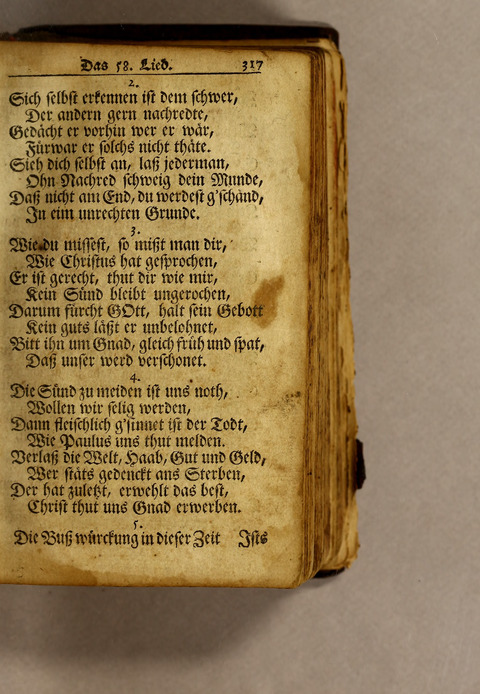 Das 58. Lied. 317
2.
Sich selbst erkennen ist dem schwer,
Der andern gern nachredte,
Gedächt er vorhin wer er wär,
Fürwar er solchs nicht thäte.
Sieh dich selbst an, laß jederman,
Ohn Nachred schweig dein Munde,
Daß nicht am End, du werdest g'schänd,
In eim unrechten Grunde.
3.
Wie du missest, so mißt man dir,
Wie Christus hat gesprochen,
Er ist gerecht, thut dir wie mir,
Kein Sünd bleibt ungerochen,
Darum fürcht GOtt, halt sein Gebott
Kein guts läßt er unbelohnet,
Bitt ihn um Gnad, gleich früh und spat,
Daß unser werd verschonet.
4.
Die Sünd zu meiden ist uns noth,
Wollen wir selig werden,
Dann fleischlich g'sinnet ist der Todt,
Wie Paulus uns thut melden.
Verlaß die Welt, Haab, Gut und Geld,
Wer stäts gedenckt ans Sterben,
Der hat zuletzt, erwehlt das best,
Christ thut uns Gnad erwerben.
5.
Die Buß würckung in dieser Zeit Ists